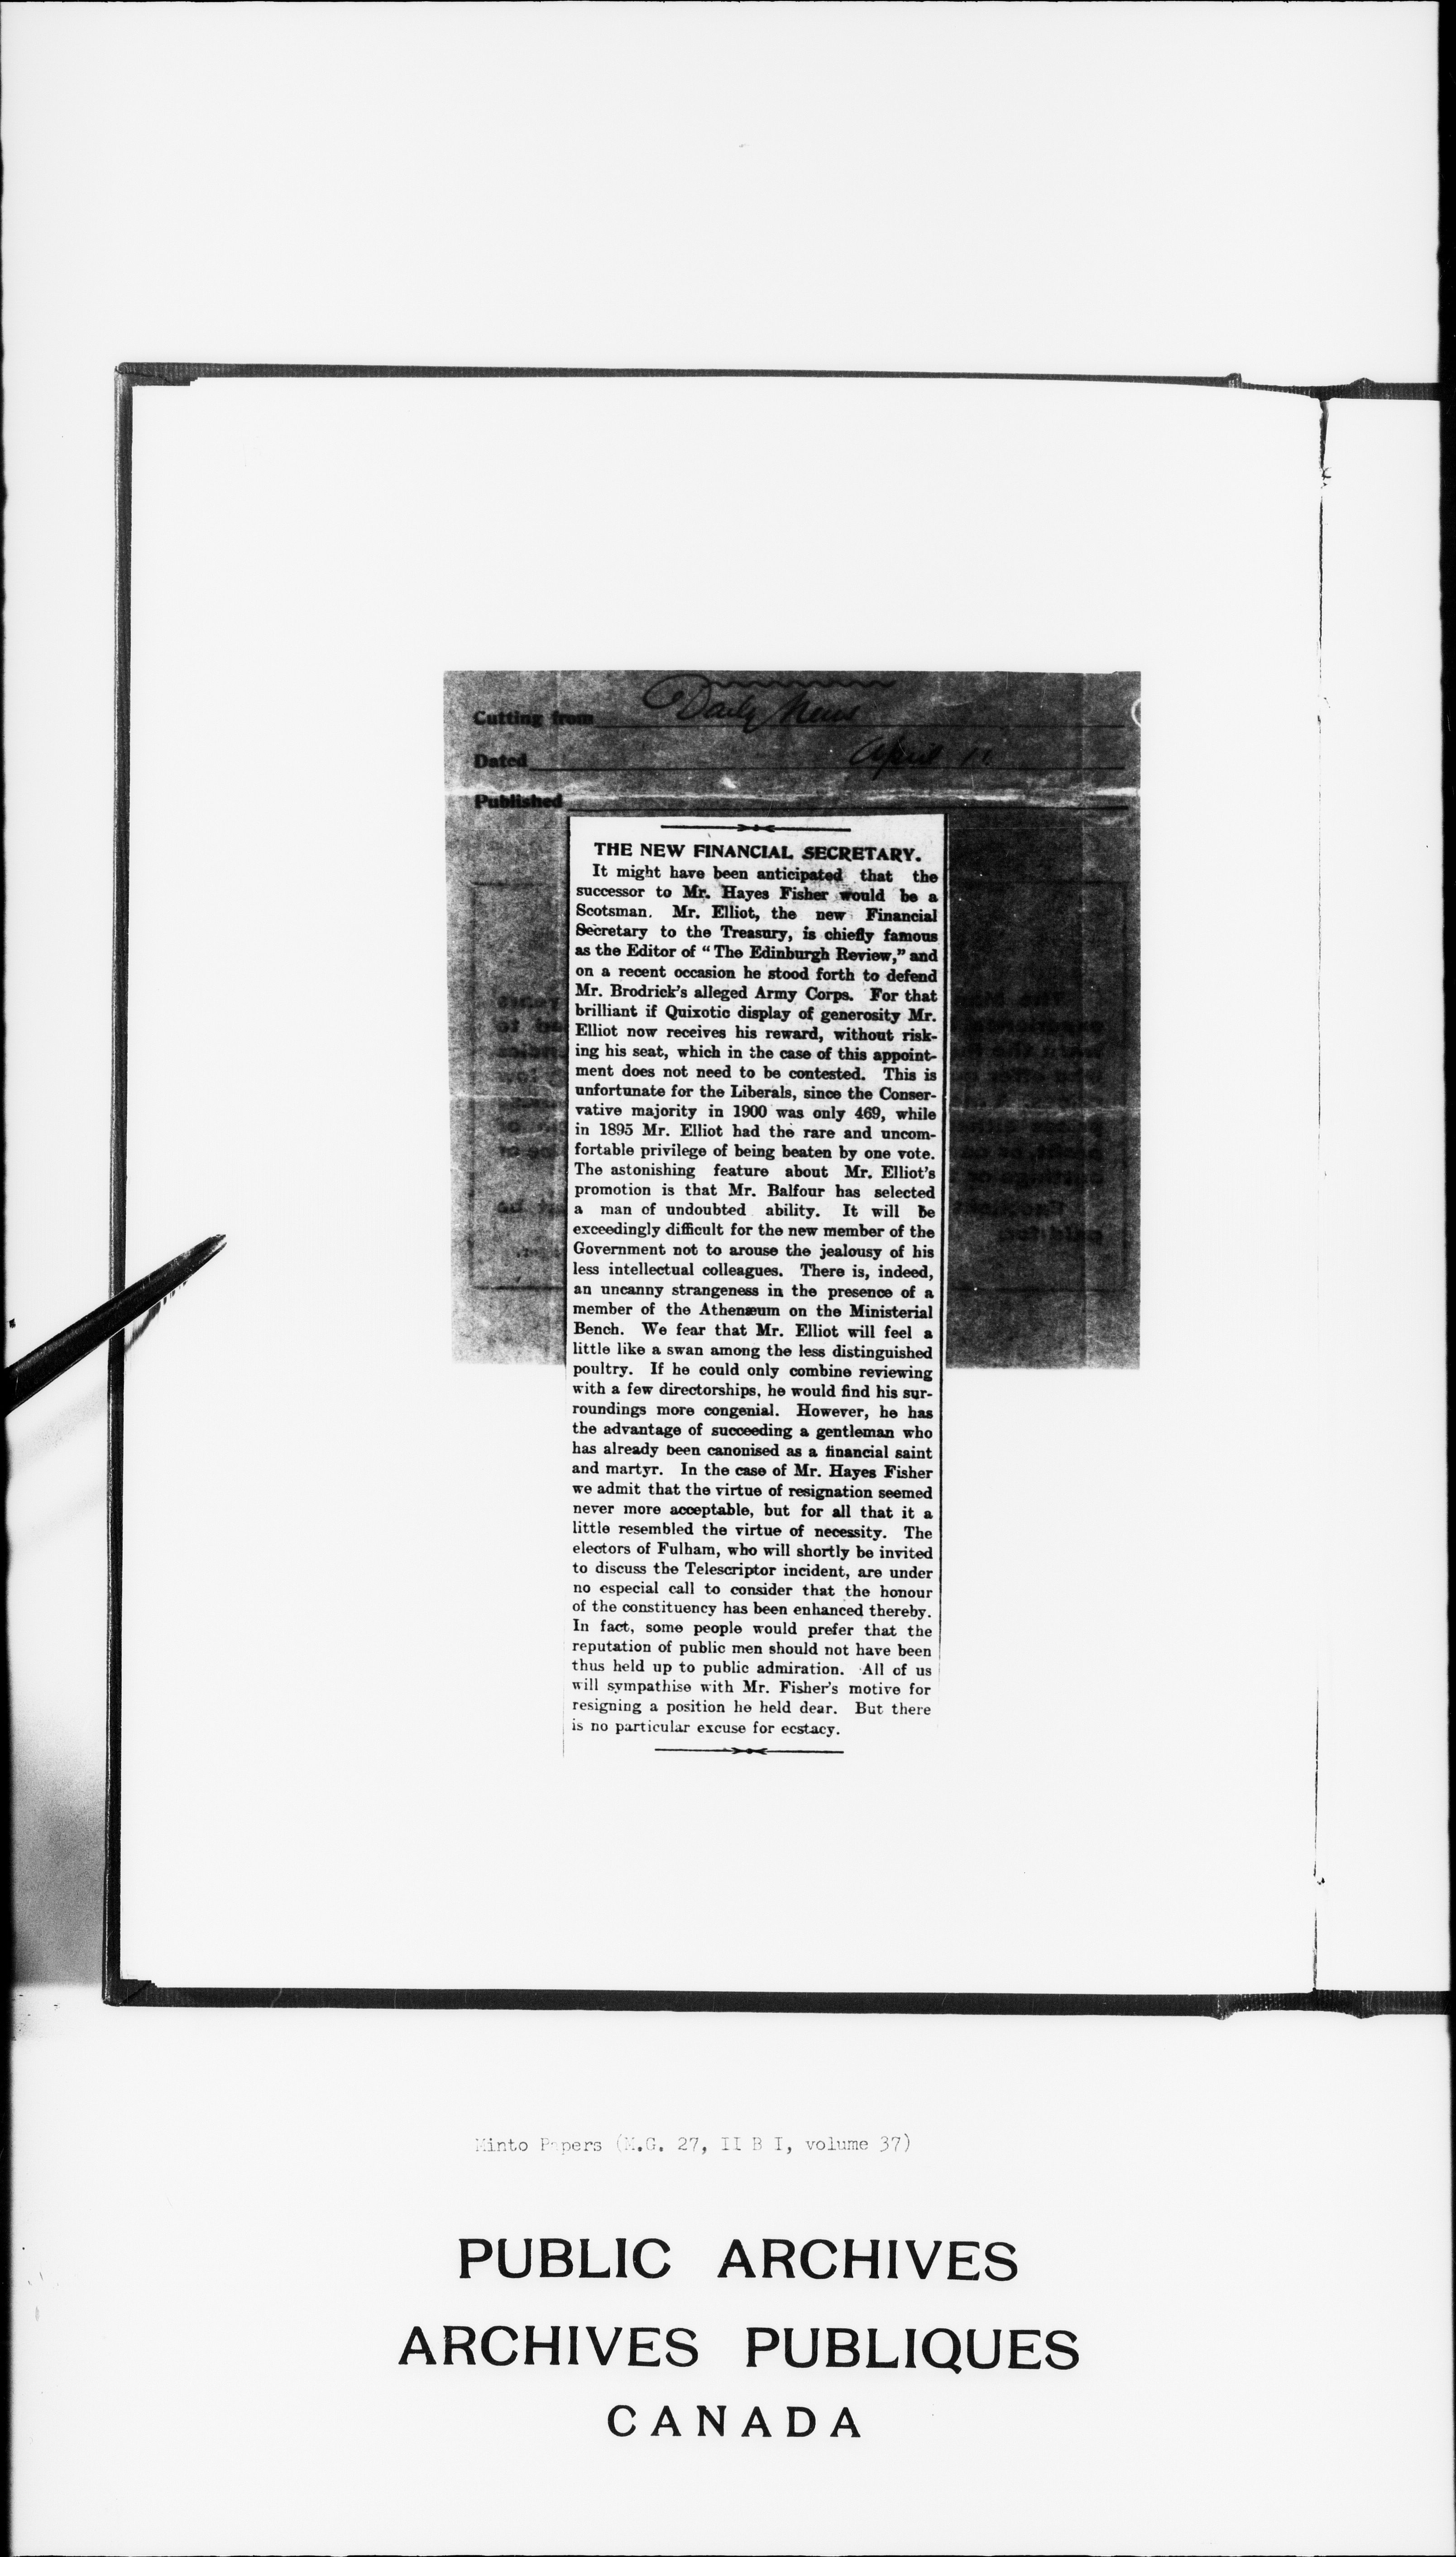 Cutting from Daily News
Dated April 11
Published
THE NEW FINANCIAL SECRETARY.
It might have been anticipated that the
successor to Mr. Hayes Fisher would be a
Scotsman. Mr. Elliot, the new Financial
Secretary to the Treasury, is chiefly famous
as the Editor of “The Edinburgh Review,” and
on a recent occasion he stood forth to defend
Mr. Brodrick's alleged Army Corps. For that
brilliant if Quixotic display of generosity Mr.
Elliot now receives his reward, without risk-
ing his seat, which in the case of this appoint-
ment does not need to be contested. This is
unfortunate for the Liberals, since the Conser-
vative majority in 1900 was only 469, while
in 1895 Mr. Elliot had the rare and uncom-
fortable privilege of being beaten by one vote.
The astonishing feature about Mr. Elliot's
promotion is that Mr. Balfour has selected
a man of undoubted ability. It will be
exceedingly difficult for the new member of the
Government not to arouse the jealousy of his
less intellectual colleagues. There is, indeed,
an uncanny strangeness in the presence of a
member of the Athenæum on the Ministerial
Bench. We fear that Mr. Elliot will feel a
little like a swan among the less distinguished
poultry. If he could only combine reviewing
with a few directorships, he would find his sur-
roundings more congenial. However, he has
the advantage of succeeding a gentleman who
has already been canonised as a financial saint
and martyr. In the case of Mr. Hayes Fisher
we admit that the virtue of resignation seemed
never more acceptable, but for all that it a
little resembled the virtue of necessity. The
electors of Fulham, who will shortly be invited
to discuss the Telescriptor incident, are under
no especial call to consider that the honour
of the constituency has been enhanced thereby.
In fact, some people would prefer that the
reputation of public men should not have been
thus held up to public admiration. All of us
will sympathise with Mr. Fisher's motive for
resigning a position he held dear. But there
is no particular excuse for ecstacy.
Minto Papers (M.G. 27, II B I, volume 37)
PUBLIC ARCHIVES
ARCHIVES PUBLIQUES
CANADA